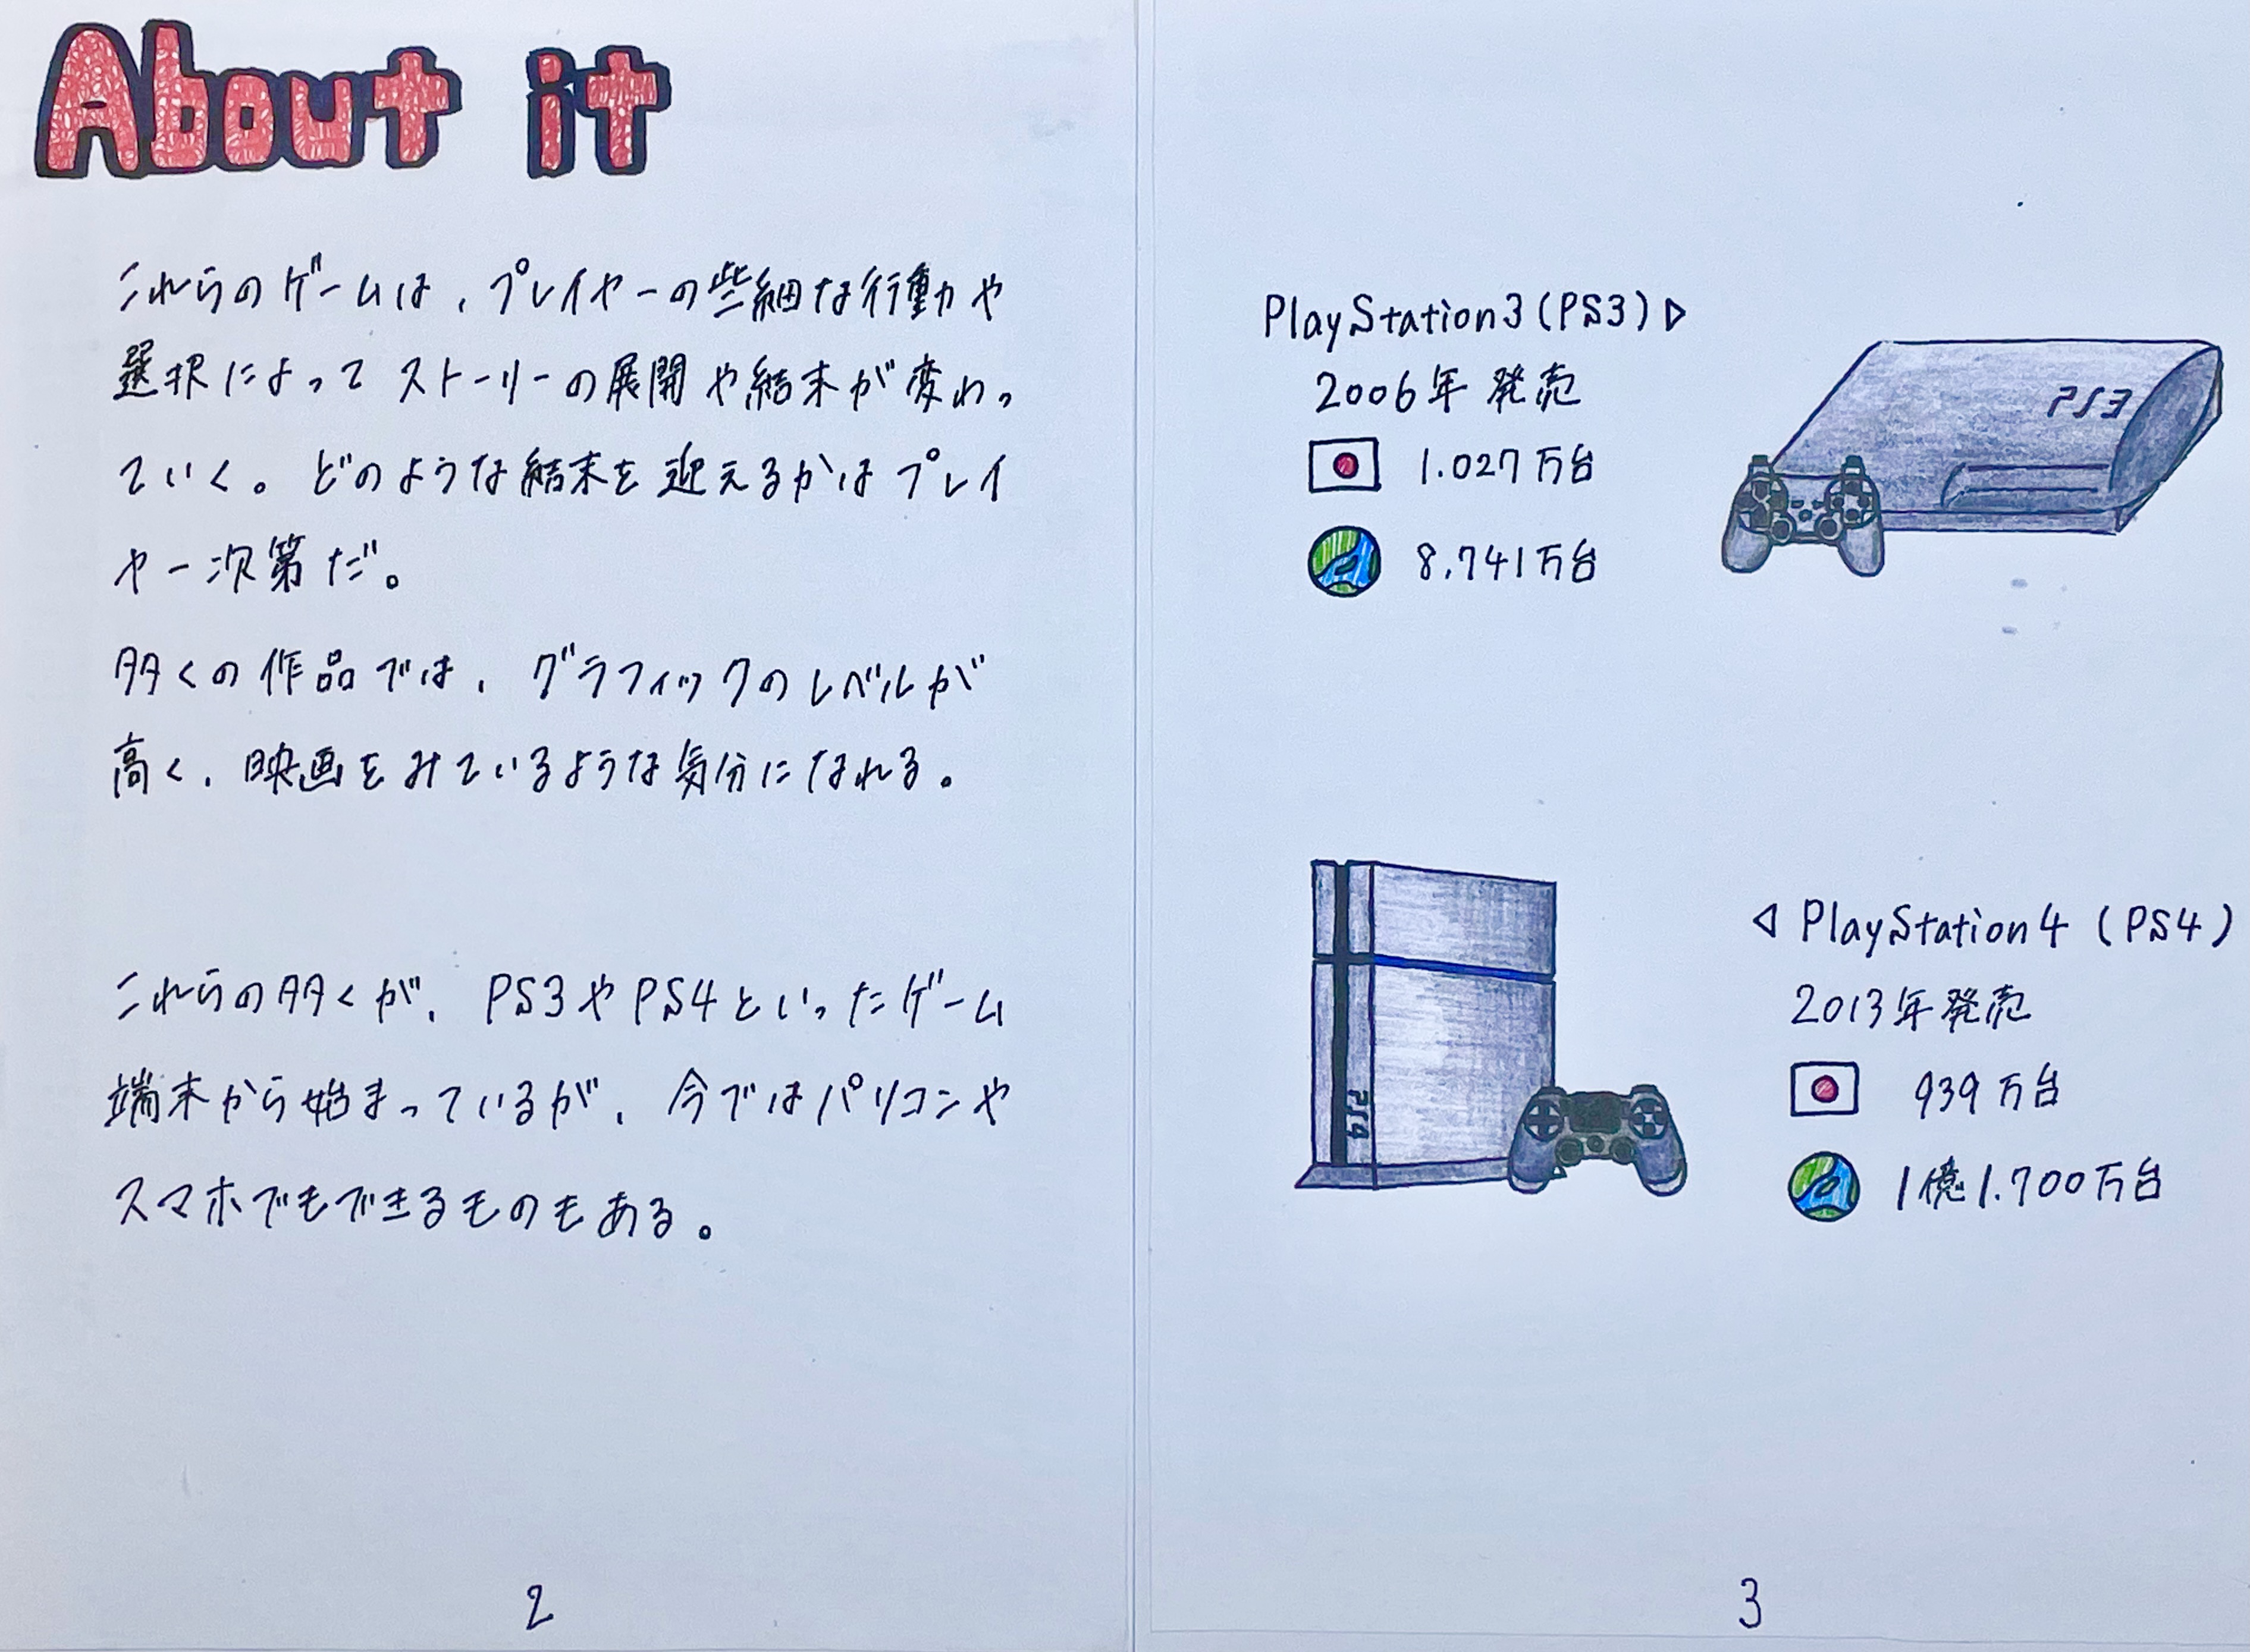 About it
これらのゲームは、プレイヤーの些細な行動や
選択によってストーリーの展開や結末が変わっ
ていく。どのような結末を迎えるかはプレイ
ヤー次第だ。
多くの作品では、グラフィックのレベルが
高く、映画をみているような気分になれる。
これらの多くが、PS3やPS4といったゲーム
端末から始まっているが、今ではパソコンや
スマホでもできるものもある。
2
PlayStation3(PS3)▷
2006年発売
1.027万台
8.741万台
PS3
◁ PlayStation4 (PS4)
2013年発売
939万台
1億1.700万台
PS4
3